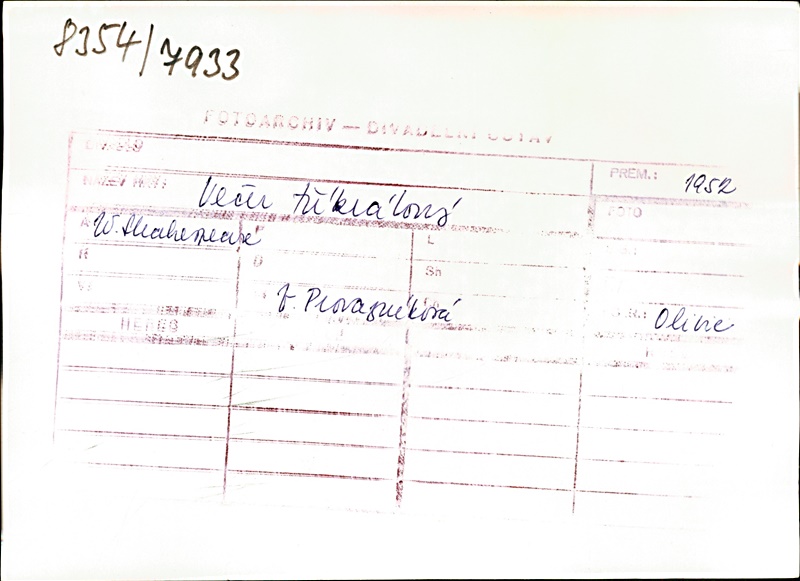 8354/7933
FOTOARCHIV — DIVADELNÍ ÚSTAV
PREM.: 1952
NÁZEV HRY: Večer tříkrálový
FOTO
A W. Shakespeare
L
R
D
Sn
J. Provazníková
Olivie